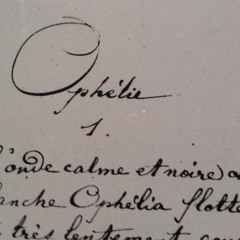 Ophélie
1.
l'onde calme et noire o
anche Ophélia flotte
très lentement, cou